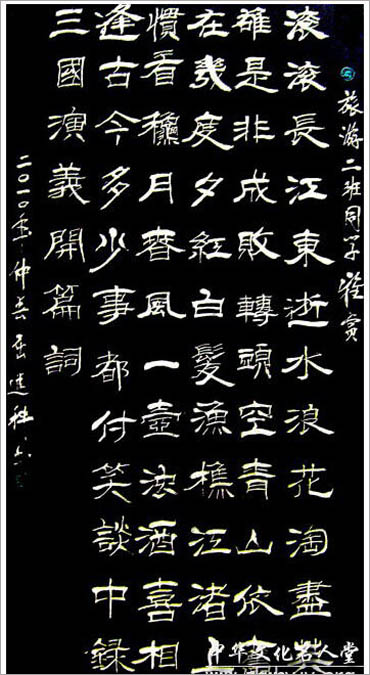 旅游二班同学雅賞
滾滾長江東逝水浪花淘盡英
雄是非成敗轉頭空青山依舊
在幾度夕紅白髮漁樵江渚上
慣看穐月春風一壺浊酒喜相
逢古今多少事都付笑談中錄
三國演義開篇詞
二〇一〇年仲
中华文化名人堂